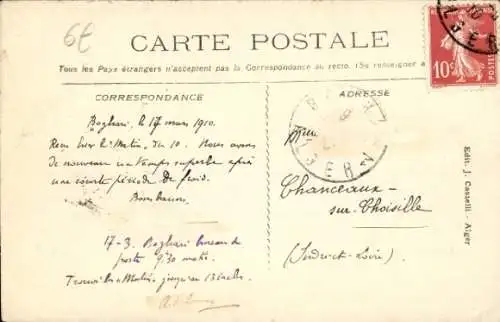 6€
CARTE POSTALE
Tous les Pays étrangers n'acceptent pas la Correspondance au recto. (Se renseigner à
CORRESPONDANCE
ADRESSE
Boghari, le 17 mars 1910.
Reçu hier le Matin du 10. Nous avons
de nouveau un temps superbe après
une courte période de froid.
Bons baisers.
17-3. Boghari bureau de
poste 9h30 matin.
jusqu'au 13 inclus.
Mlle
Chanceaux-
sur-Choisille
(Indre-et-Loire)
10c
POSTES
Edit. J. Casteli - Alger